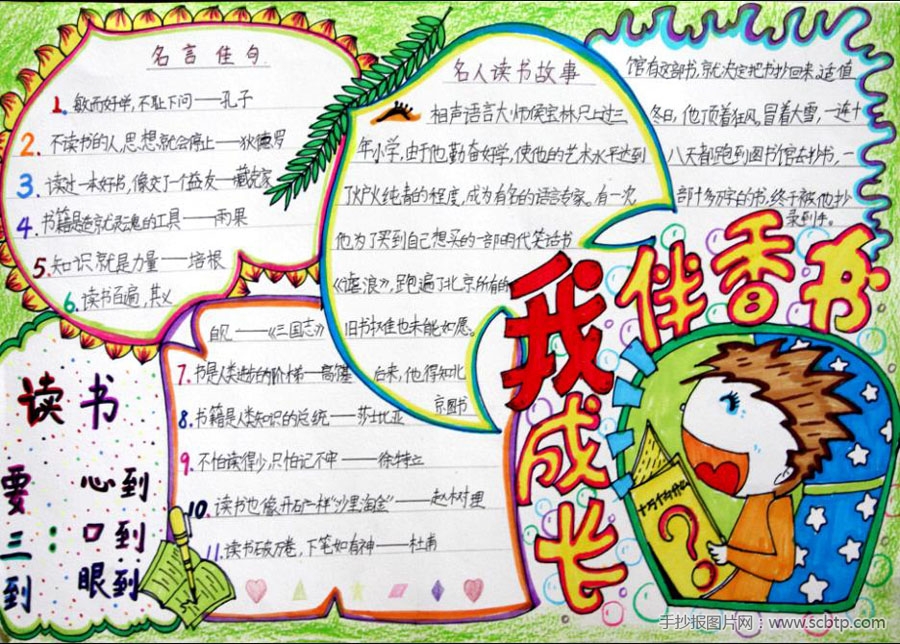 名言佳句
1. 敏而好学,不耻下问——孔子
2. 不读书的人,思想就会停止——狄德罗
3. 读过一本好书,像交了一个益友——藏克家
4. 书籍是造就灵魂的工具——雨果
5. 知识就是力量——培根
6. 读书百遍,其义
自见——《三国志》
7. 书是人类进步的阶梯——高尔基
8. 书籍是人类知识的总统——莎士比亚
9. 不怕读得少,只怕记不牢——徐特立
10. 读书也像开矿一样"沙里淘金"——赵树理
11. 读书破万卷,下笔如有神——杜甫
名人读书故事
相声语言大师侯宝林只上过三
年小学,由于他勤奋好学,使他的艺术水平达到
了炉火纯青的程度,成为有名的语言专家。有一次
他为了买到自己想买的一部明代笑话书
《谑浪》,跑遍了北京所有的
旧书摊也未能如愿。
后来,他得知北
京图书
馆有这部书,就决定把书抄回来。适值
冬日,他顶着狂风,冒着大雪,一连十
八天都跑到图书馆去抄书,一
部十多万字的书,终于被他抄
录到手。
书香伴我
成长
读书
要 心到
三: 口到
到 眼到
十万个为什么
?
手抄报图片网:www.scbtp.com